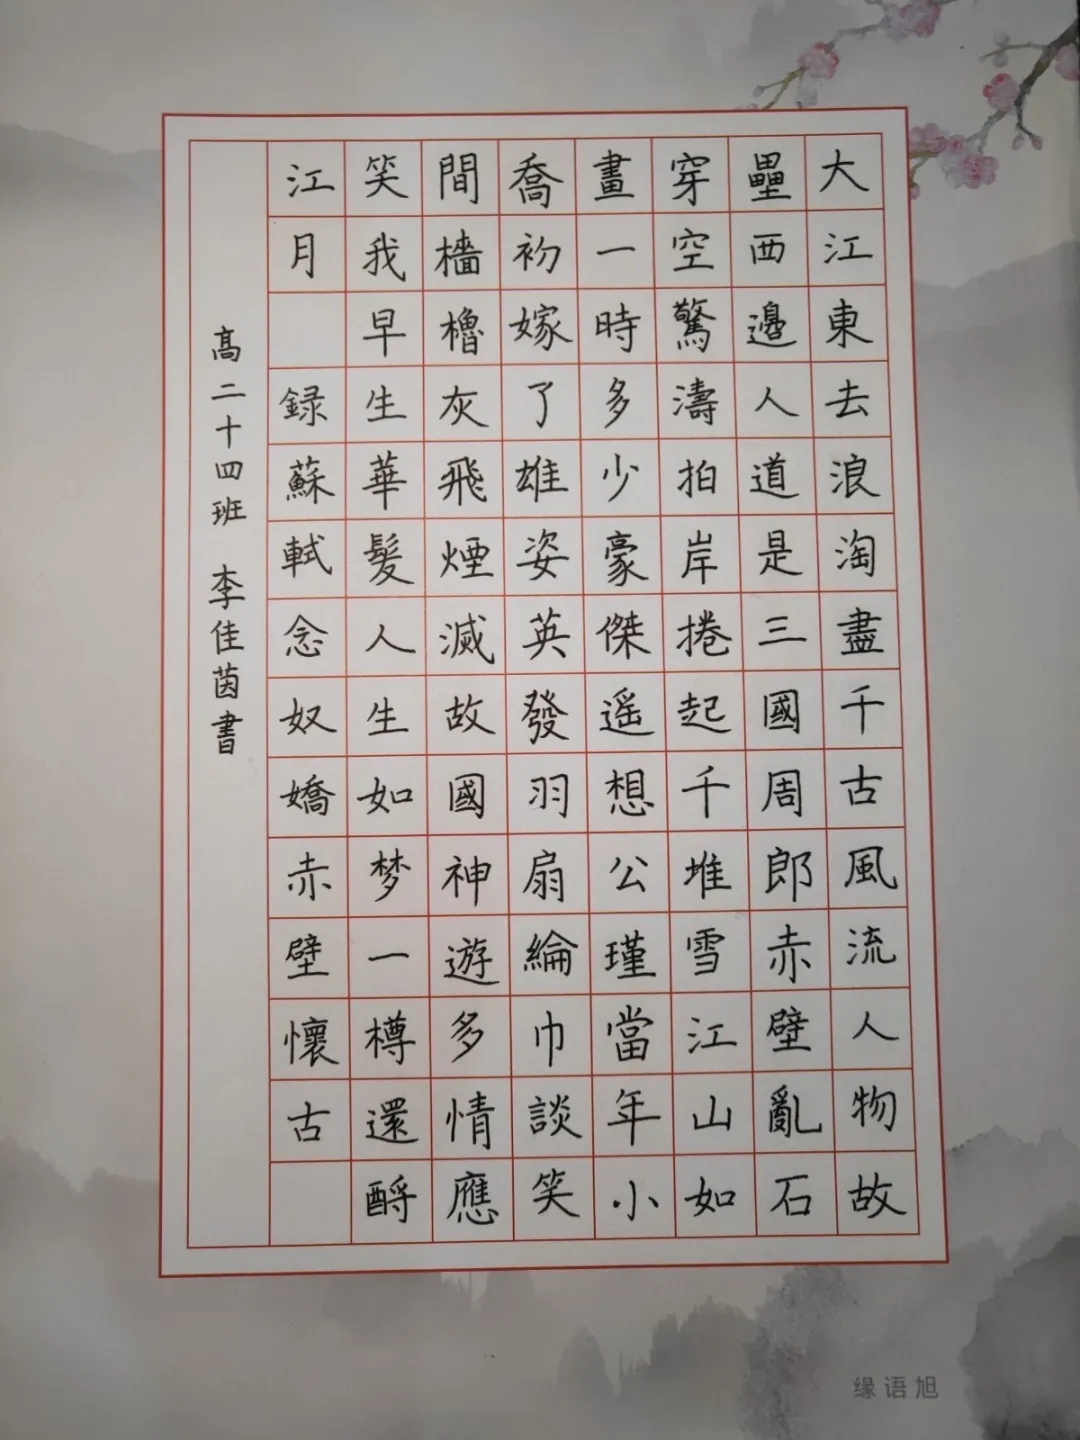 大江東去浪淘盡千古風流人物故
壘西邊人道是三國周郎赤壁亂石
穿空驚濤拍岸捲起千堆雪江山如
畫一時多少豪傑遥想公瑾當年小
喬初嫁了雄姿英發羽扇綸巾談笑
間檣櫓灰飛煙滅故國神遊多情應
笑我早生華髮人生如梦一樽還酹
江月 録蘇軾念奴嬌赤壁懷古
高二十四班 李佳茵書
缘语旭